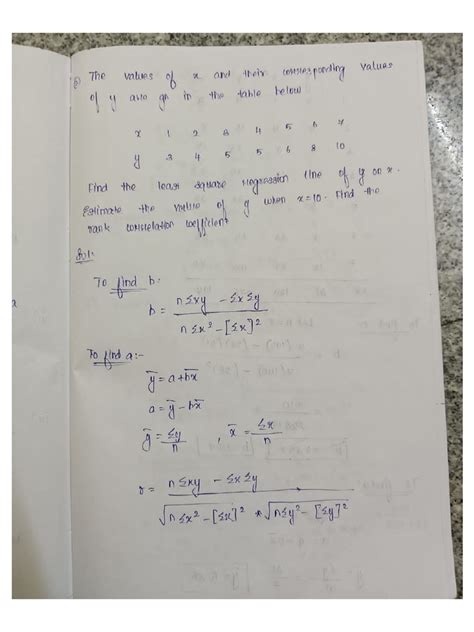 The values of x and their corresponding values
of y are gn in the table below
x 1 2 3 4 5 6 7
y 3 4 5 5 6 8 10
Find the least square regression line of y on x.
Estimate the value of y when x=10. Find the
rank correlation coefficient
Sol:
To find b:
b = nΣxy - ΣxΣy / nΣx² - [Σx]²
To find a:-
ȳ = a+bx̄
a = ȳ - bx̄
ȳ = Σy/n , x̄ = Σx/n
r = nΣxy - ΣxΣy / √nΣx² - [Σx]² * √nΣy² - [Σy]²